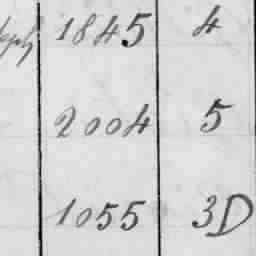 1845 4
2004 5
1055 3D